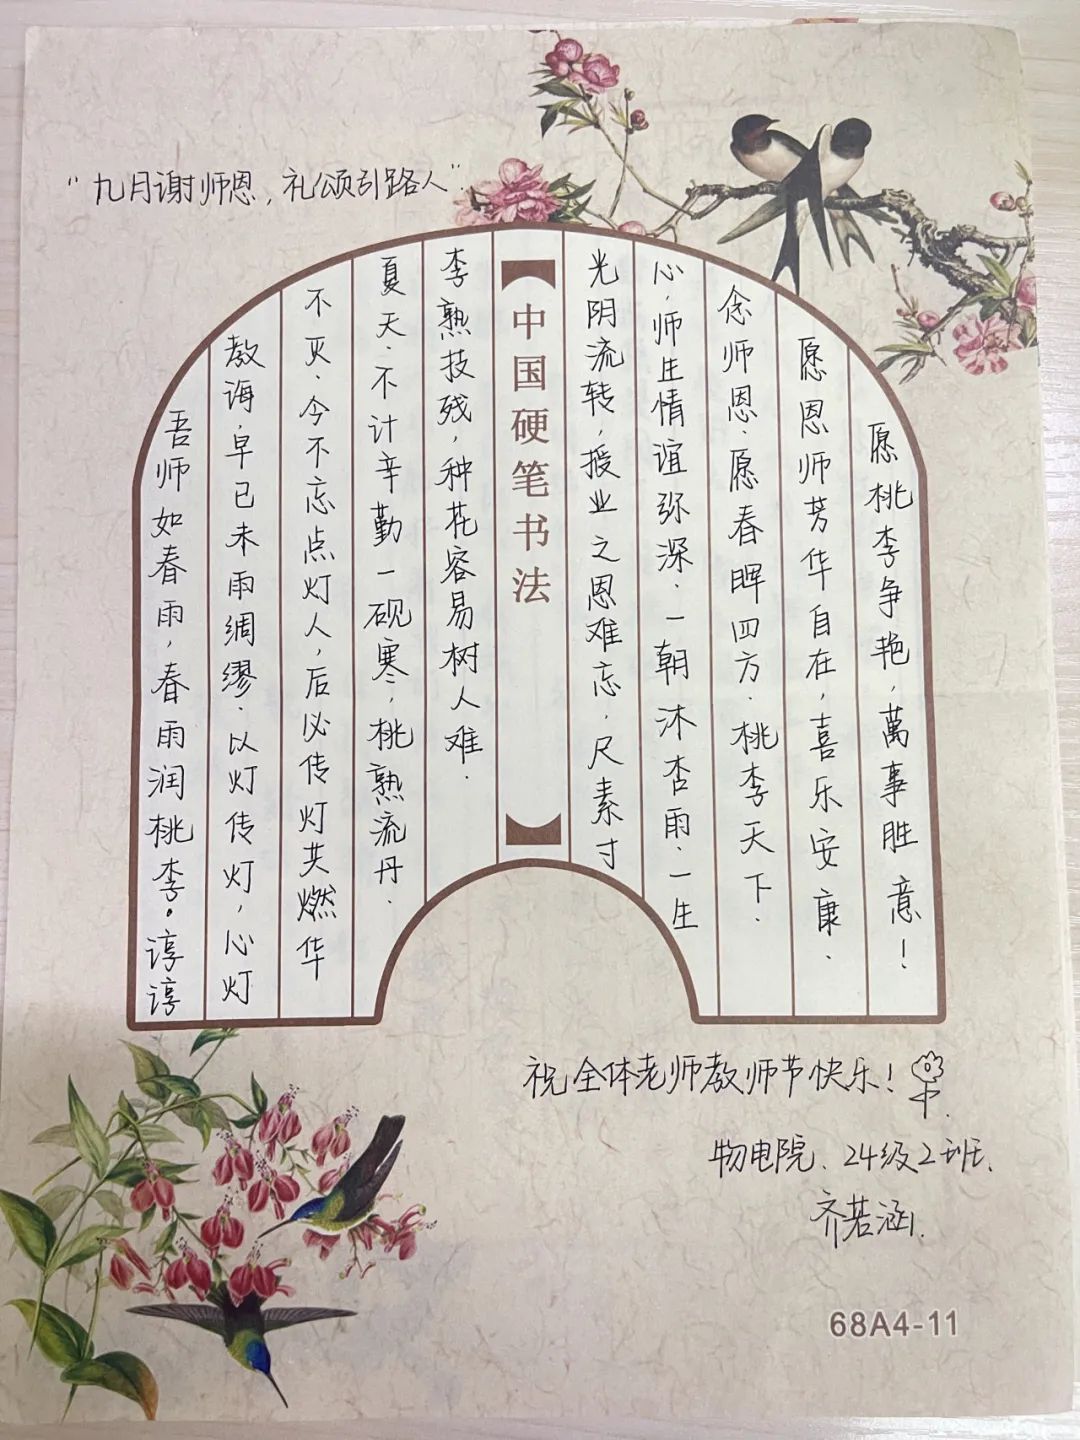 “九月谢师恩,礼颂引路人”.
吾师如春雨,春雨润桃李。谆谆
教诲,早已未雨绸缪.以灯传灯,心灯
不灭.今不忘点灯人,后必传灯共燃华
夏天.不计辛勤一砚寒,桃熟流丹.
李熟技残,种花容易树人难.
【中国硬笔书法】
光阴流转,授业之恩难忘,尺素寸
心.师生情谊弥深.一朝沐杏雨.一生
念师恩.愿春晖四方.桃李天下.
愿恩师芳华自在,喜乐安康.
愿桃李争艳,萬事胜意!
祝全体老师教师节快乐!
物电院、24级2班、
齐若涵.
68A4-11